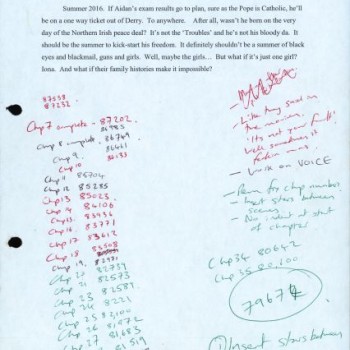 Summer 2016. If Aidan's exam results go to plan, sure as the Pope is Catholic, he'll
be on a one way ticket out of Derry. To anywhere. After all, wasn't he born on the very
day of the Northern Irish peace deal? It's not the 'Troubles' and he's not his bloody da. It
should be the summer to kick-start his freedom. It definitely shouldn't be a summer of black
eyes and blackmail, guns and girls. Well, maybe the girls… But what if it's just one girl?
Iona. And what if their family histories make it impossible?
87558
87232
Chp 7 complete - 87202
86983
Chp 8 complete - 86749
Chp 9 86461
Chp 10
Chp 11 85704
Chp 12 85285
Chp 13 85023
Chp 14 84106
Chp 15 83936
Chp 16 83771
Chp 17 83612
Chp 18
Chp 19, 82981
Chp 20 82739
Chp 21 82573
Chp 23 82581
Chp 24 8221
Chp 25 82,100
Chp 26 81,972
Chp 27 81,683
81519
- Like they said in
the movies,
'It's not your fault'
Well sometimes it
- Work on VOICE
- for chp number
- Insert stars between
scenes
- No indent at start
of chapter
Chp 34 80642
Chp 35 80,100
79674
① Insert stars between